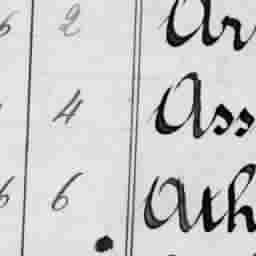 6 2 Ar
4 Ass
6 6 Ath